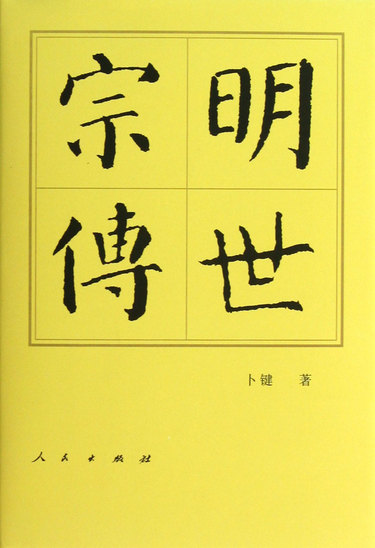 明世
宗傳
卜键 著
人民出版社